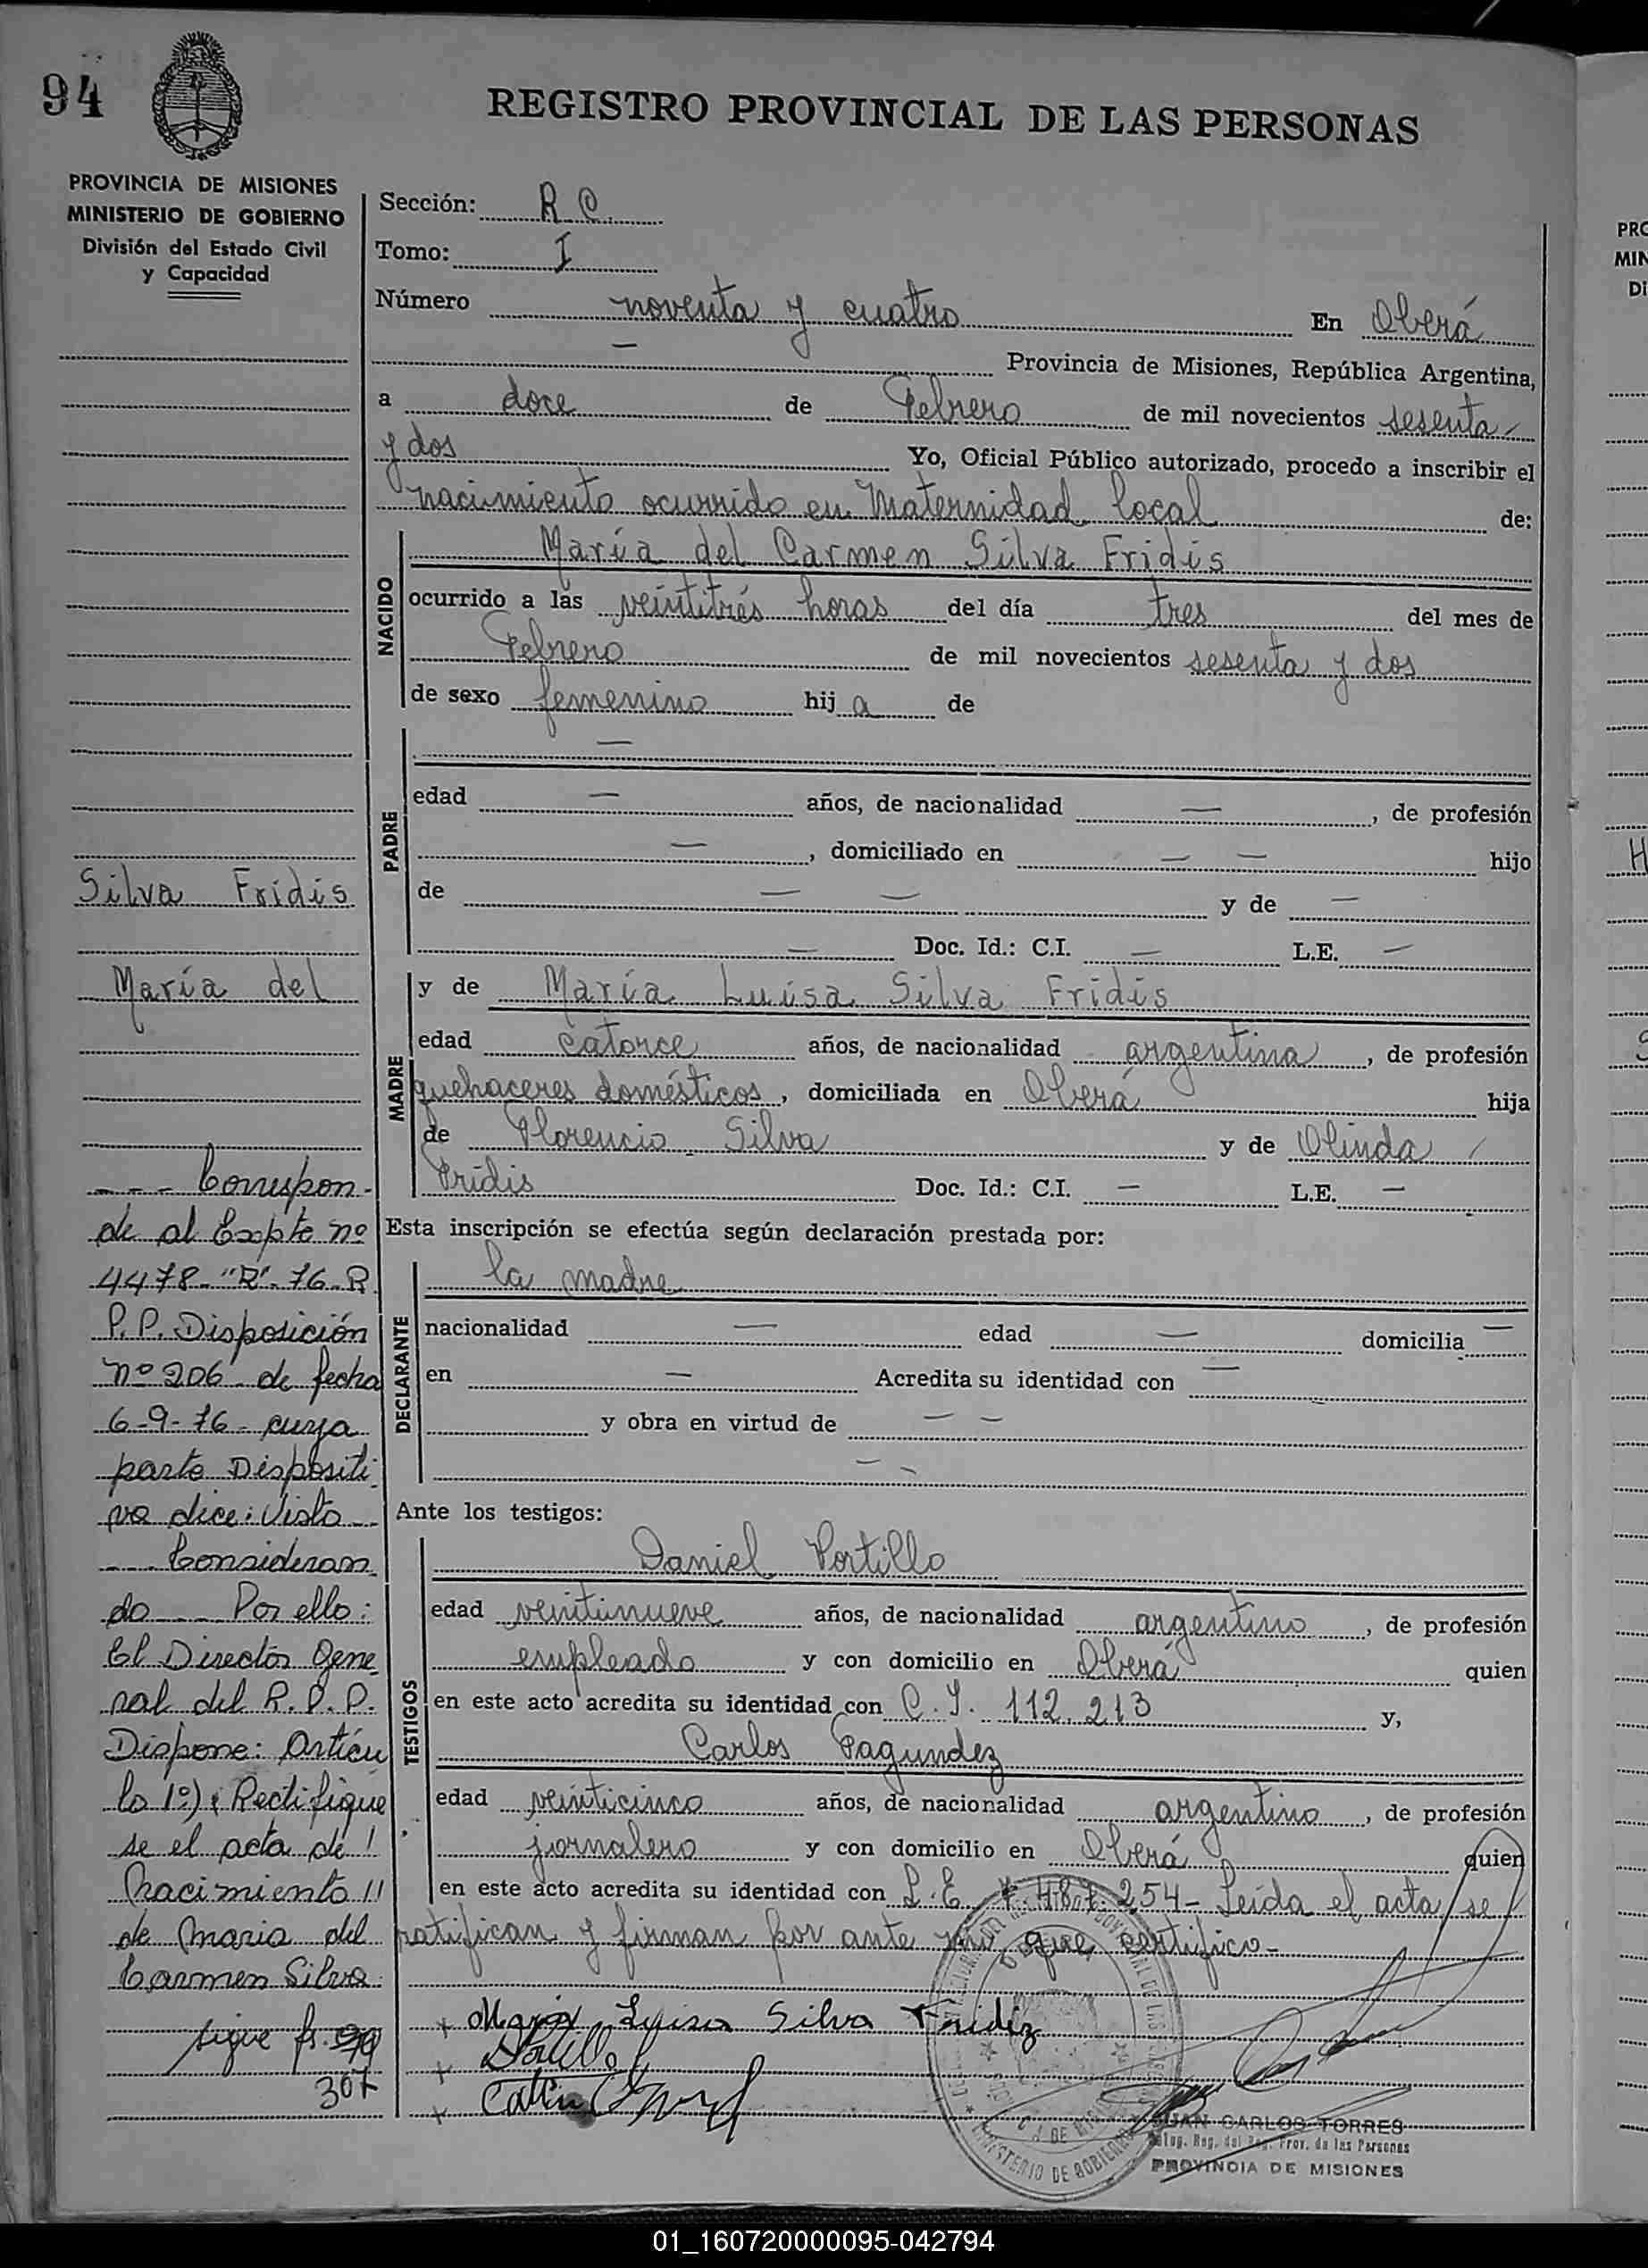 94
REGISTRO PROVINCIAL DE LAS PERSONAS
PROVINCIA DE MISIONES
MINISTERIO DE GOBIERNO
División del Estado Civil
y Capacidad
Sección: R. C.
Tomo: I
Número noventa y cuatro En Oberá
— Provincia de Misiones, República Argentina,
a doce de Febrero de mil novecientos sesenta
y dos Yo, Oficial Público autorizado, procedo a inscribir el
nacimiento ocurrido en Maternidad local de:
NACIDO
María del Carmen Silva Fridis
ocurrido a las veintitrés horas del día tres del mes de
Febrero de mil novecientos sesenta y dos
de sexo femenino hija de
PADRE
—
edad — años, de nacionalidad —, de profesión
—, domiciliado en — — hijo
de — — y de —
— Doc. Id.: C.I. — L.E. —
MADRE
y de María Luisa Silva Fridis
edad catorce años, de nacionalidad argentina, de profesión
quehaceres domésticos, domiciliada en Oberá hija
de Florencio Silva y de Olinda
Fridis Doc. Id.: C.I. — L.E. —
Esta inscripción se efectúa según declaración prestada por:
DECLARANTE
la madre
nacionalidad — edad — domicilia —
en — Acredita su identidad con —
y obra en virtud de — —
— -
Ante los testigos:
TESTIGOS
Daniel Portillo
edad veintinueve años, de nacionalidad argentino, de profesión
empleado y con domicilio en Oberá quien
en este acto acredita su identidad con C. I. 112.213 y,
Carlos Fagundez
edad veinticinco años, de nacionalidad argentino, de profesión
jornalero y con domicilio en Oberá quien
en este acto acredita su identidad con L.E. 7.487.254- Leída el acta se
ratifican y firman por ante mí, que certifico-
+ María Luisa Silva Fridiz
JUAN CARLOS TORRES
Prov. de las Personas
PROVINCIA DE MISIONES
MINISTERIO DE GOBIERNO
Silva Fridis
María del
--- Correspon-
de al Expte nº
4478-"R"-76-R
P.P. Disposición
nº 206 de fecha
6-9-76- cuya
parte Dispositi-
va dice: Visto --
--- Consideran
do --- Por ello:
El Director Gene
ral del R.P.P.
Dispone: Artícu
lo 1º) Rectifíque
se el acta de
Nacimiento
de María del
Carmen Silva
sigue fs.
307
PRO
MIN
Di
01_160720000095-042794